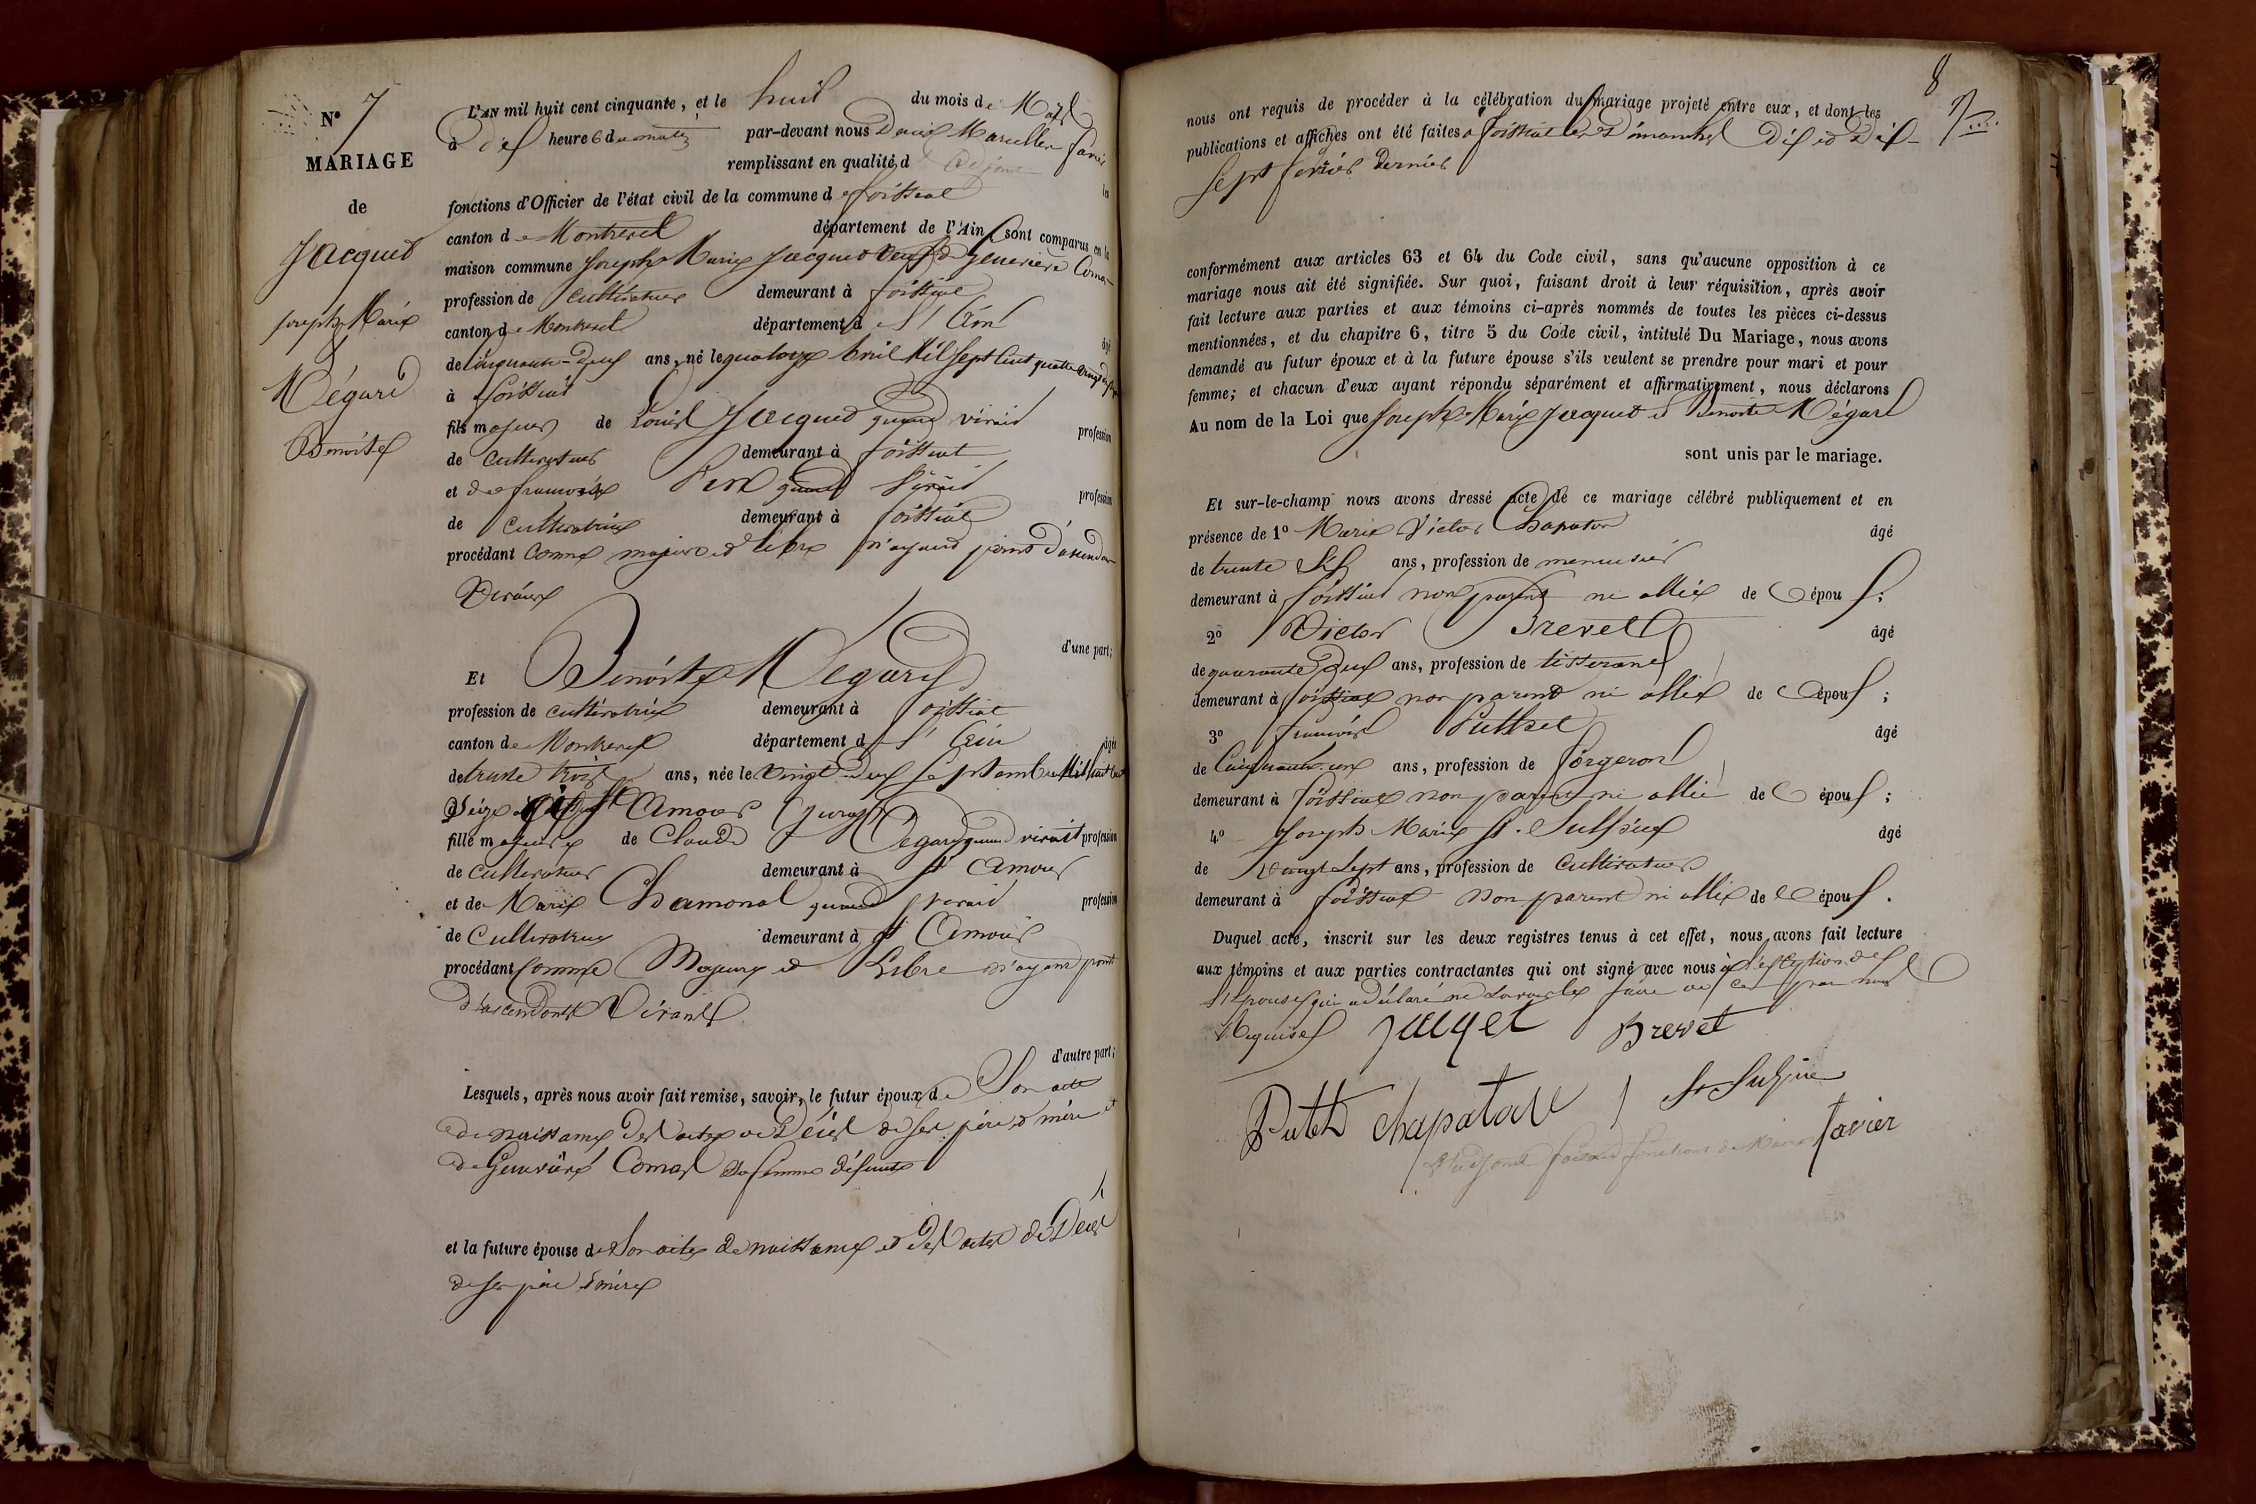 N° 7
MARIAGE
de
Jacquet
Joseph Marie
Mégard
Benoite
L'AN mil huit cent cinquante, et le huit du mois de
à dix heures du matin par-devant nous Marcellin
remplissant en qualité d adjoint les
fonctions d'Officier de l'état civil de la commune de foissiat
canton de Montrevel département de l'Ain sont comparus en la
maison commune Joseph Marie Jacquet veuf de Genevieve
profession de cultivateur demeurant à foissiat
canton de Montrevel département de l'Ain âgé
de cinquante-deux ans, né le quatorze avril Mil sept cent quatre vingt
à foissiat
fils majeur de Louis Jacquet quand vivait profession
de cultivateur demeurant à foissiat
et de francoise quand vivait profession
de cultivatrice demeurant à foissiat
procédant comme majeur et libre n'ayant point d'ascendans
vivans
d'une part;
Et Benoite Megard
profession de cultivatrice demeurant à foissiat
canton de Montrevel département de l'Ain âgée
de trente trois ans, née le vingt-deux Septembre Mil huit cent
Seize à St Amour (jura)
fille majeure de Claude Megard quand vivait profession
de cultivateur demeurant à St Amour
et de Marie Chamonal quand vivait profession
de cultivatrice demeurant à St Amour
procédant comme Majeure et Libre n'ayant point
d'ascendants Vivants
d'autre part;
Lesquels, après nous avoir fait remise, savoir, le futur époux de Son acte
de naissance des actes de Décès de ses père et mère et
de Genevieve sa femme défunte
et la future épouse de Son acte de naissance et des actes de Décès
de ses père et mère
8
nous ont requis de procéder à la célébration du mariage projeté entre eux, et dont les
publications et affiches ont été faites à foissiat les Dimanches Dix et Dix-
sept fevrier dernier
conformément aux articles 63 et 64 du Code civil, sans qu'aucune opposition à ce
mariage nous ait été signifiée. Sur quoi, faisant droit à leur réquisition, après avoir
fait lecture aux parties et aux témoins ci-après nommés de toutes les pièces ci-dessus
mentionnées, et du chapitre 6, titre 5 du Code civil, intitulé Du Mariage, nous avons
demandé au futur époux et à la future épouse s'ils veulent se prendre pour mari et pour
femme; et chacun d'eux ayant répondu séparément et affirmativement, nous déclarons
Au nom de la Loi que Joseph Marie Jacquet et Benoite Mégard
sont unis par le mariage.
Et sur-le-champ nous avons dressé acte de ce mariage célébré publiquement et en
présence de 1° Marie Victor Chapaton âgé
de trente Six ans, profession de menuisier
demeurant à foissiat non parent ni allié de époux;
2° Victor Brevet âgé
de quarante deux ans, profession de tisserand
demeurant à foissiat non parent ni allié de époux;
3° francois Puthet âgé
de Cinquante un ans, profession de forgeron
demeurant à foissiat non parent ni allié de époux;
4° Joseph Marie St. Sulpice âgé
de vingt Sept ans, profession de cultivateur
demeurant à foissiat non parent ni allié de époux.
Duquel acte, inscrit sur les deux registres tenus à cet effet, nous avons fait lecture
aux témoins et aux parties contractantes qui ont signé avec nous à l'exception de
l'Epouse qui a déclaré ne Savoir le faire de ce par nous
Requise Jacquet Brevet
Puthet chapaton St Sulpice
L'adjoint faisant fonctions de Maire favier